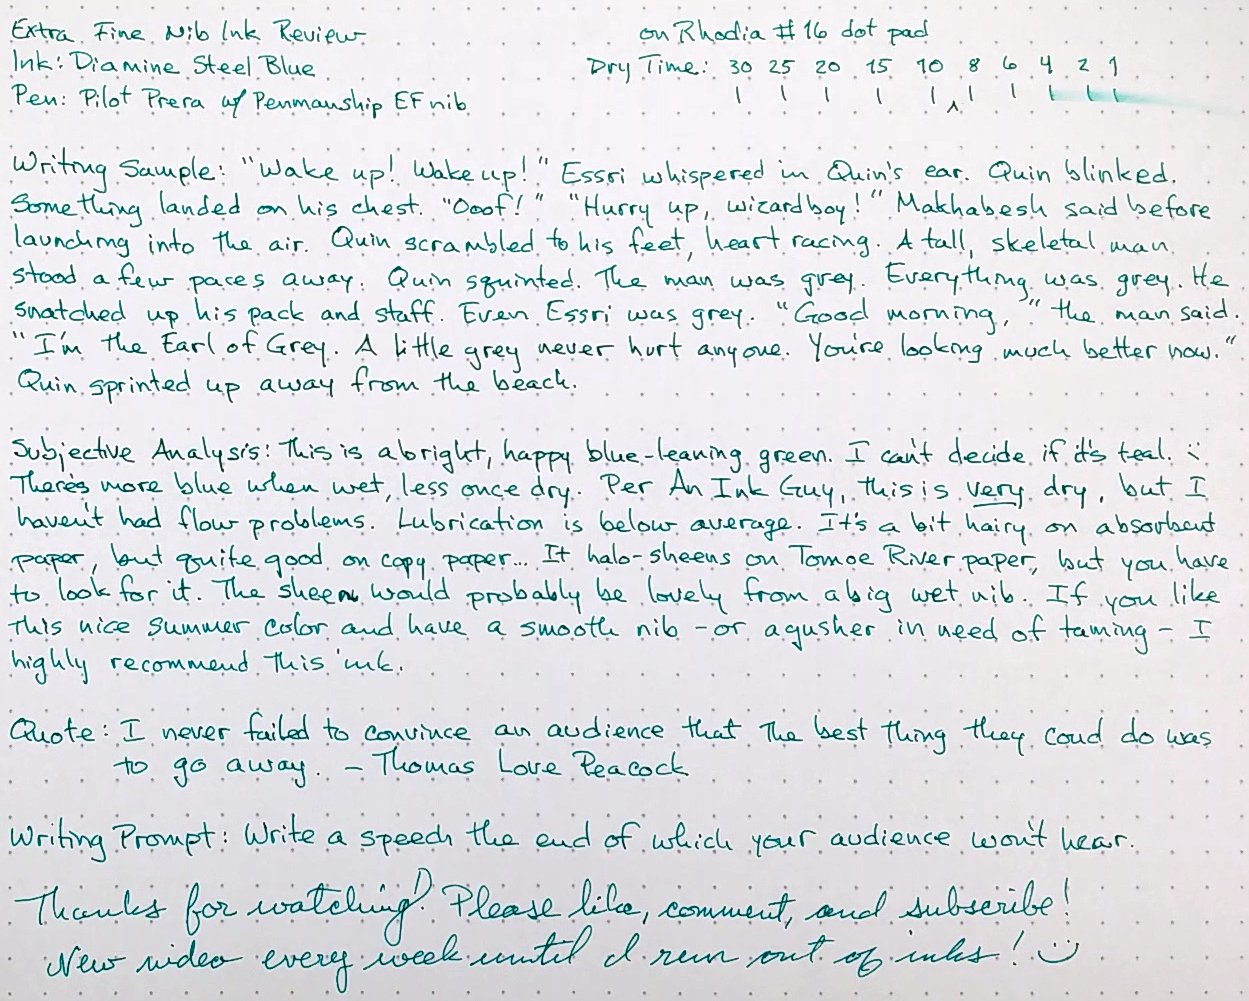 Extra Fine Nib Ink Review
on Rhodia #16 dot pad
Ink: Diamine Steel Blue
Dry Time: 30 25 20 15 10 8 6 4 2 1
Pen: Pilot Prera w/ Penmanship EF nib
Writing Sample: "Wake up! Wake up!" Essri whispered in Quin's ear. Quin blinked.
Something landed on his chest. "Ooof!" "Hurry up, wizardboy!" Makhabesh said before
launching into the air. Quin scrambled to his feet, heart racing. A tall, skeletal man
stood a few paces away. Quin squinted. The man was grey. Everything was grey. He
snatched up his pack and staff. Even Essri was grey. "Good morning," the man said.
"I'm the Earl of Grey. A little grey never hurt anyone. You're looking much better now."
Quin sprinted up away from the beach.
Subjective Analysis: This is a bright, happy blue-leaning green. I can't decide if it's teal. :-
There's more blue when wet, less once dry. Per An Ink Guy, this is very dry, but I
haven't had flow problems. Lubrication is below average. It's a bit hairy on absorbent
paper, but quite good on copy paper... It halo-sheens on Tomoe River paper, but you have
to look for it. The sheen would probably be lovely from a big wet nib. If you like
this nice summer color and have a smooth nib - or a gusher in need of taming - I
highly recommend this ink.
Quote: I never failed to convince an audience that the best thing they coud do was
to go away. - Thomas Love Peacock
Writing Prompt: Write a speech the end of which your audience won't hear.
Thanks for watching! Please like, comment, and subscribe!
New video every week until I run out of inks! :)